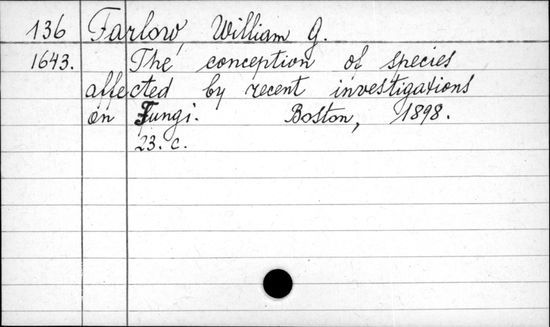 136 Farlow, William G.
1643. The conception of species
affected by recent investigations
on Fungi. Boston, 1898.
23. c.